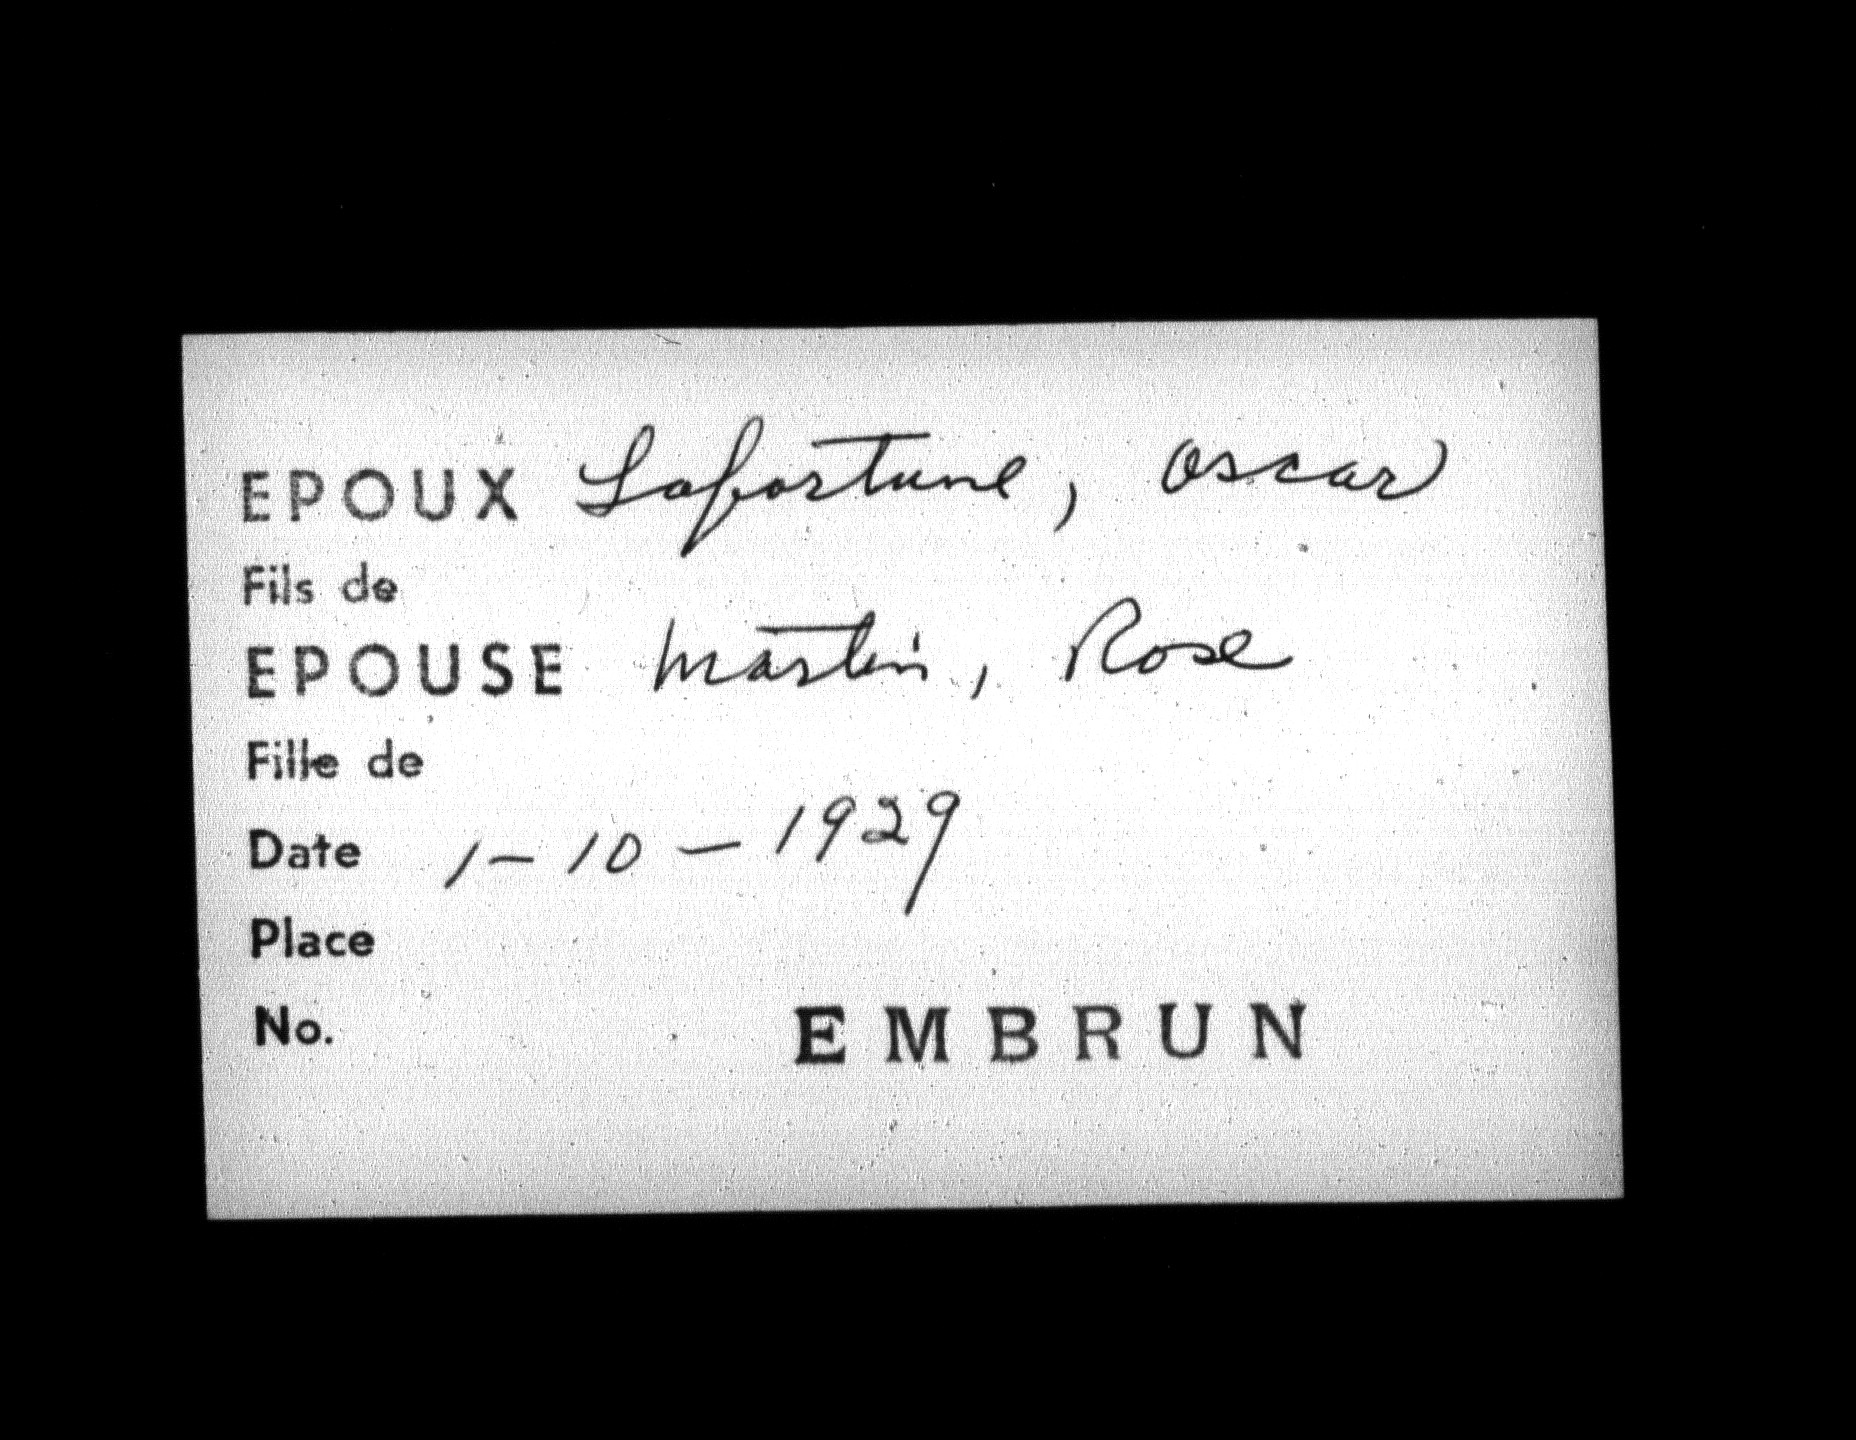 EPOUX Lafortune, Oscar
Fils de
EPOUSE Martin, Rose
Fille de
Date 1-10-1929
Place
No. EMBRUN